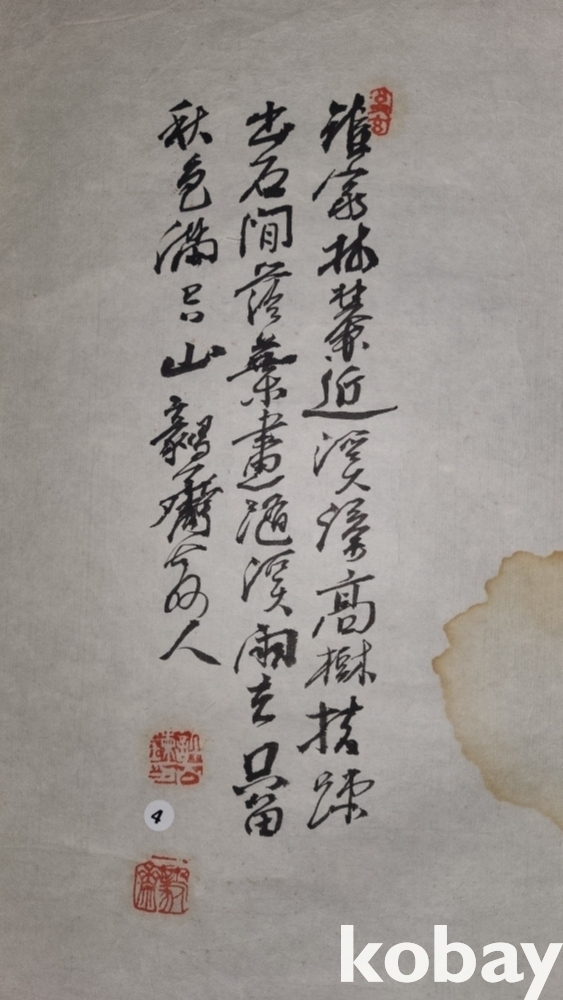 誰家林麓近溪灣高樹扶疎
出石間落葉盡隨溪雨去只留
秋色滿山 齋 人
4
kobay